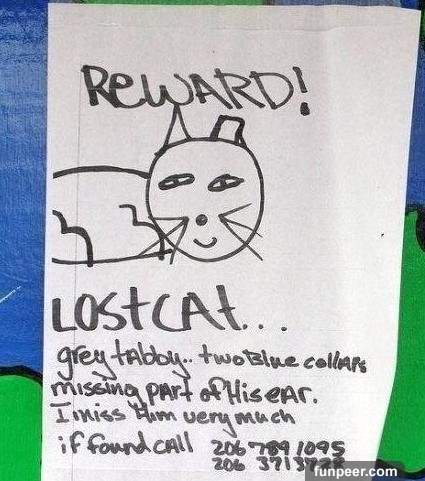 ReWARD!
LOSt CAt...
grey tabby.. two Blue collars
missing part of His ear.
I miss Him very much
if found call 206 789 1095
206
funpeer.com